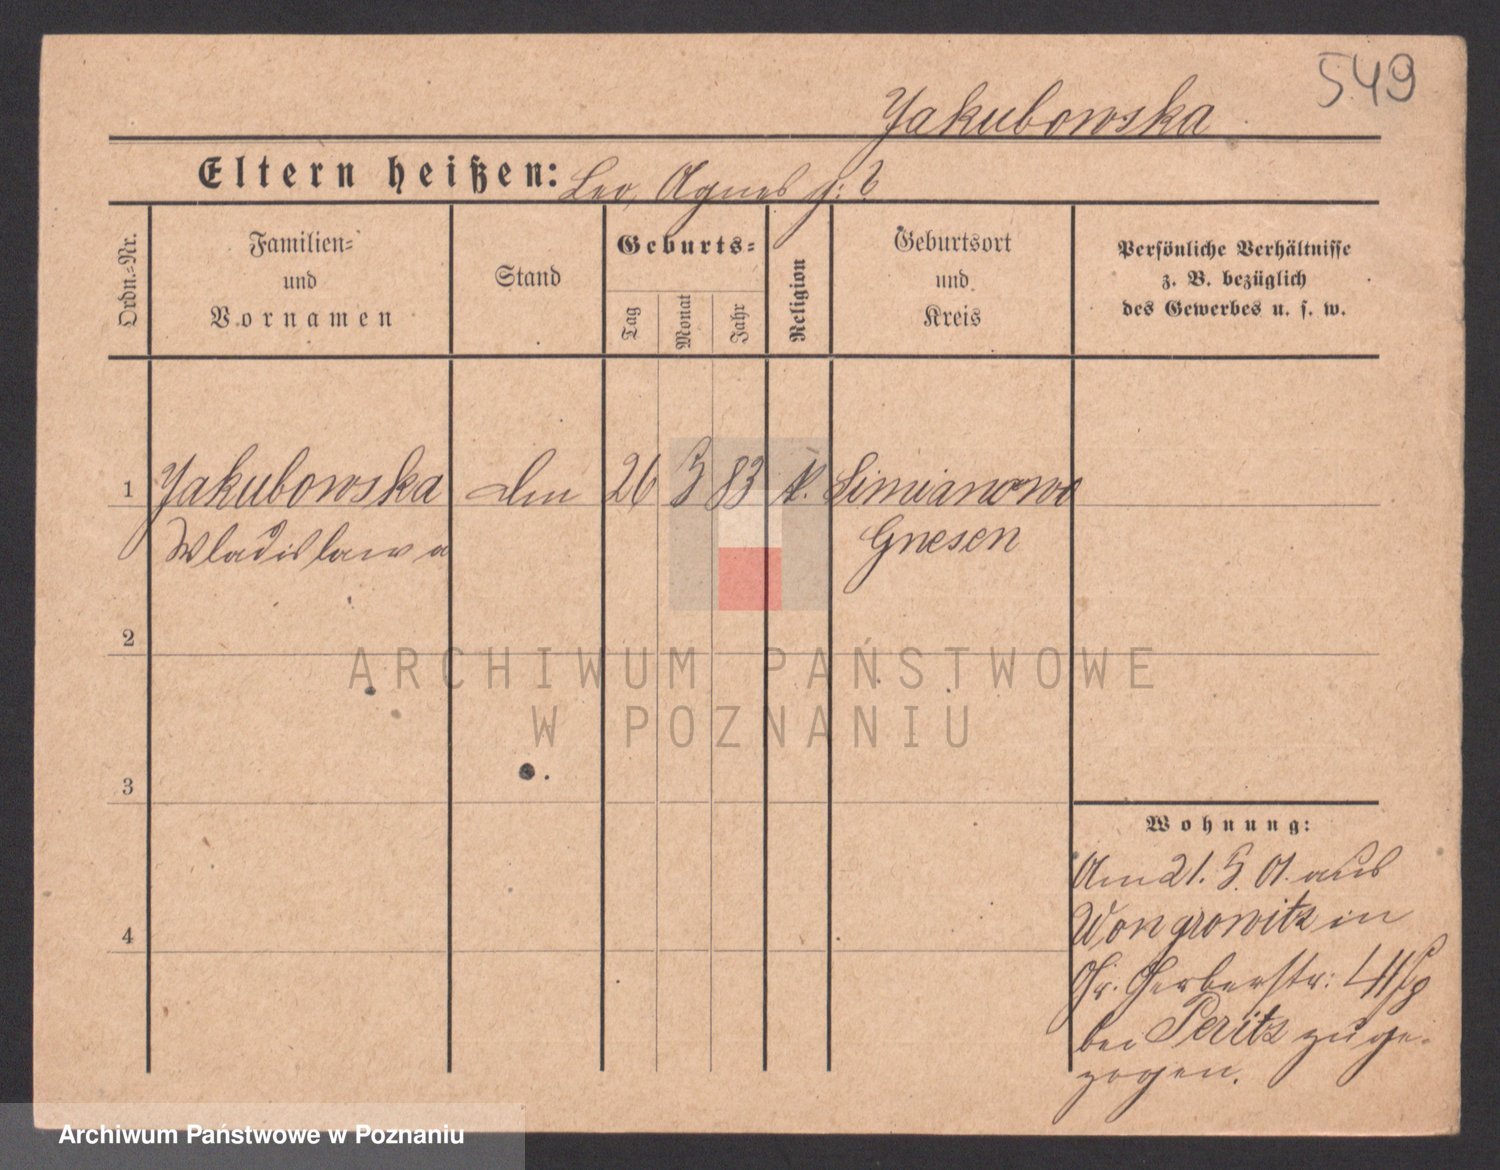 549
Jakubowska
Eltern heißen: Leo, Agnes g: ?
Ordn.-Nr.
Familien-
und
Vornamen
Stand
Geburts-
Tag
Monat
Jahr
Religion
Geburtsort
und
Kreis
Persönliche Verhältnisse
z. B. bezüglich
des Gewerbes u. s. w.
1 Jakubowska 26 3 83 k. Simianowo
Wladislawa Gnesen
2
ARCHIWUM PAŃSTWOWE
W POZNANIU
3
Wohnung:
Am 21. 5. 01. aus
Wongrowitz in
Gr. Gerberstr:
4
bei Peritz zuge-
zogen.
Archiwum Państwowe w Poznaniu